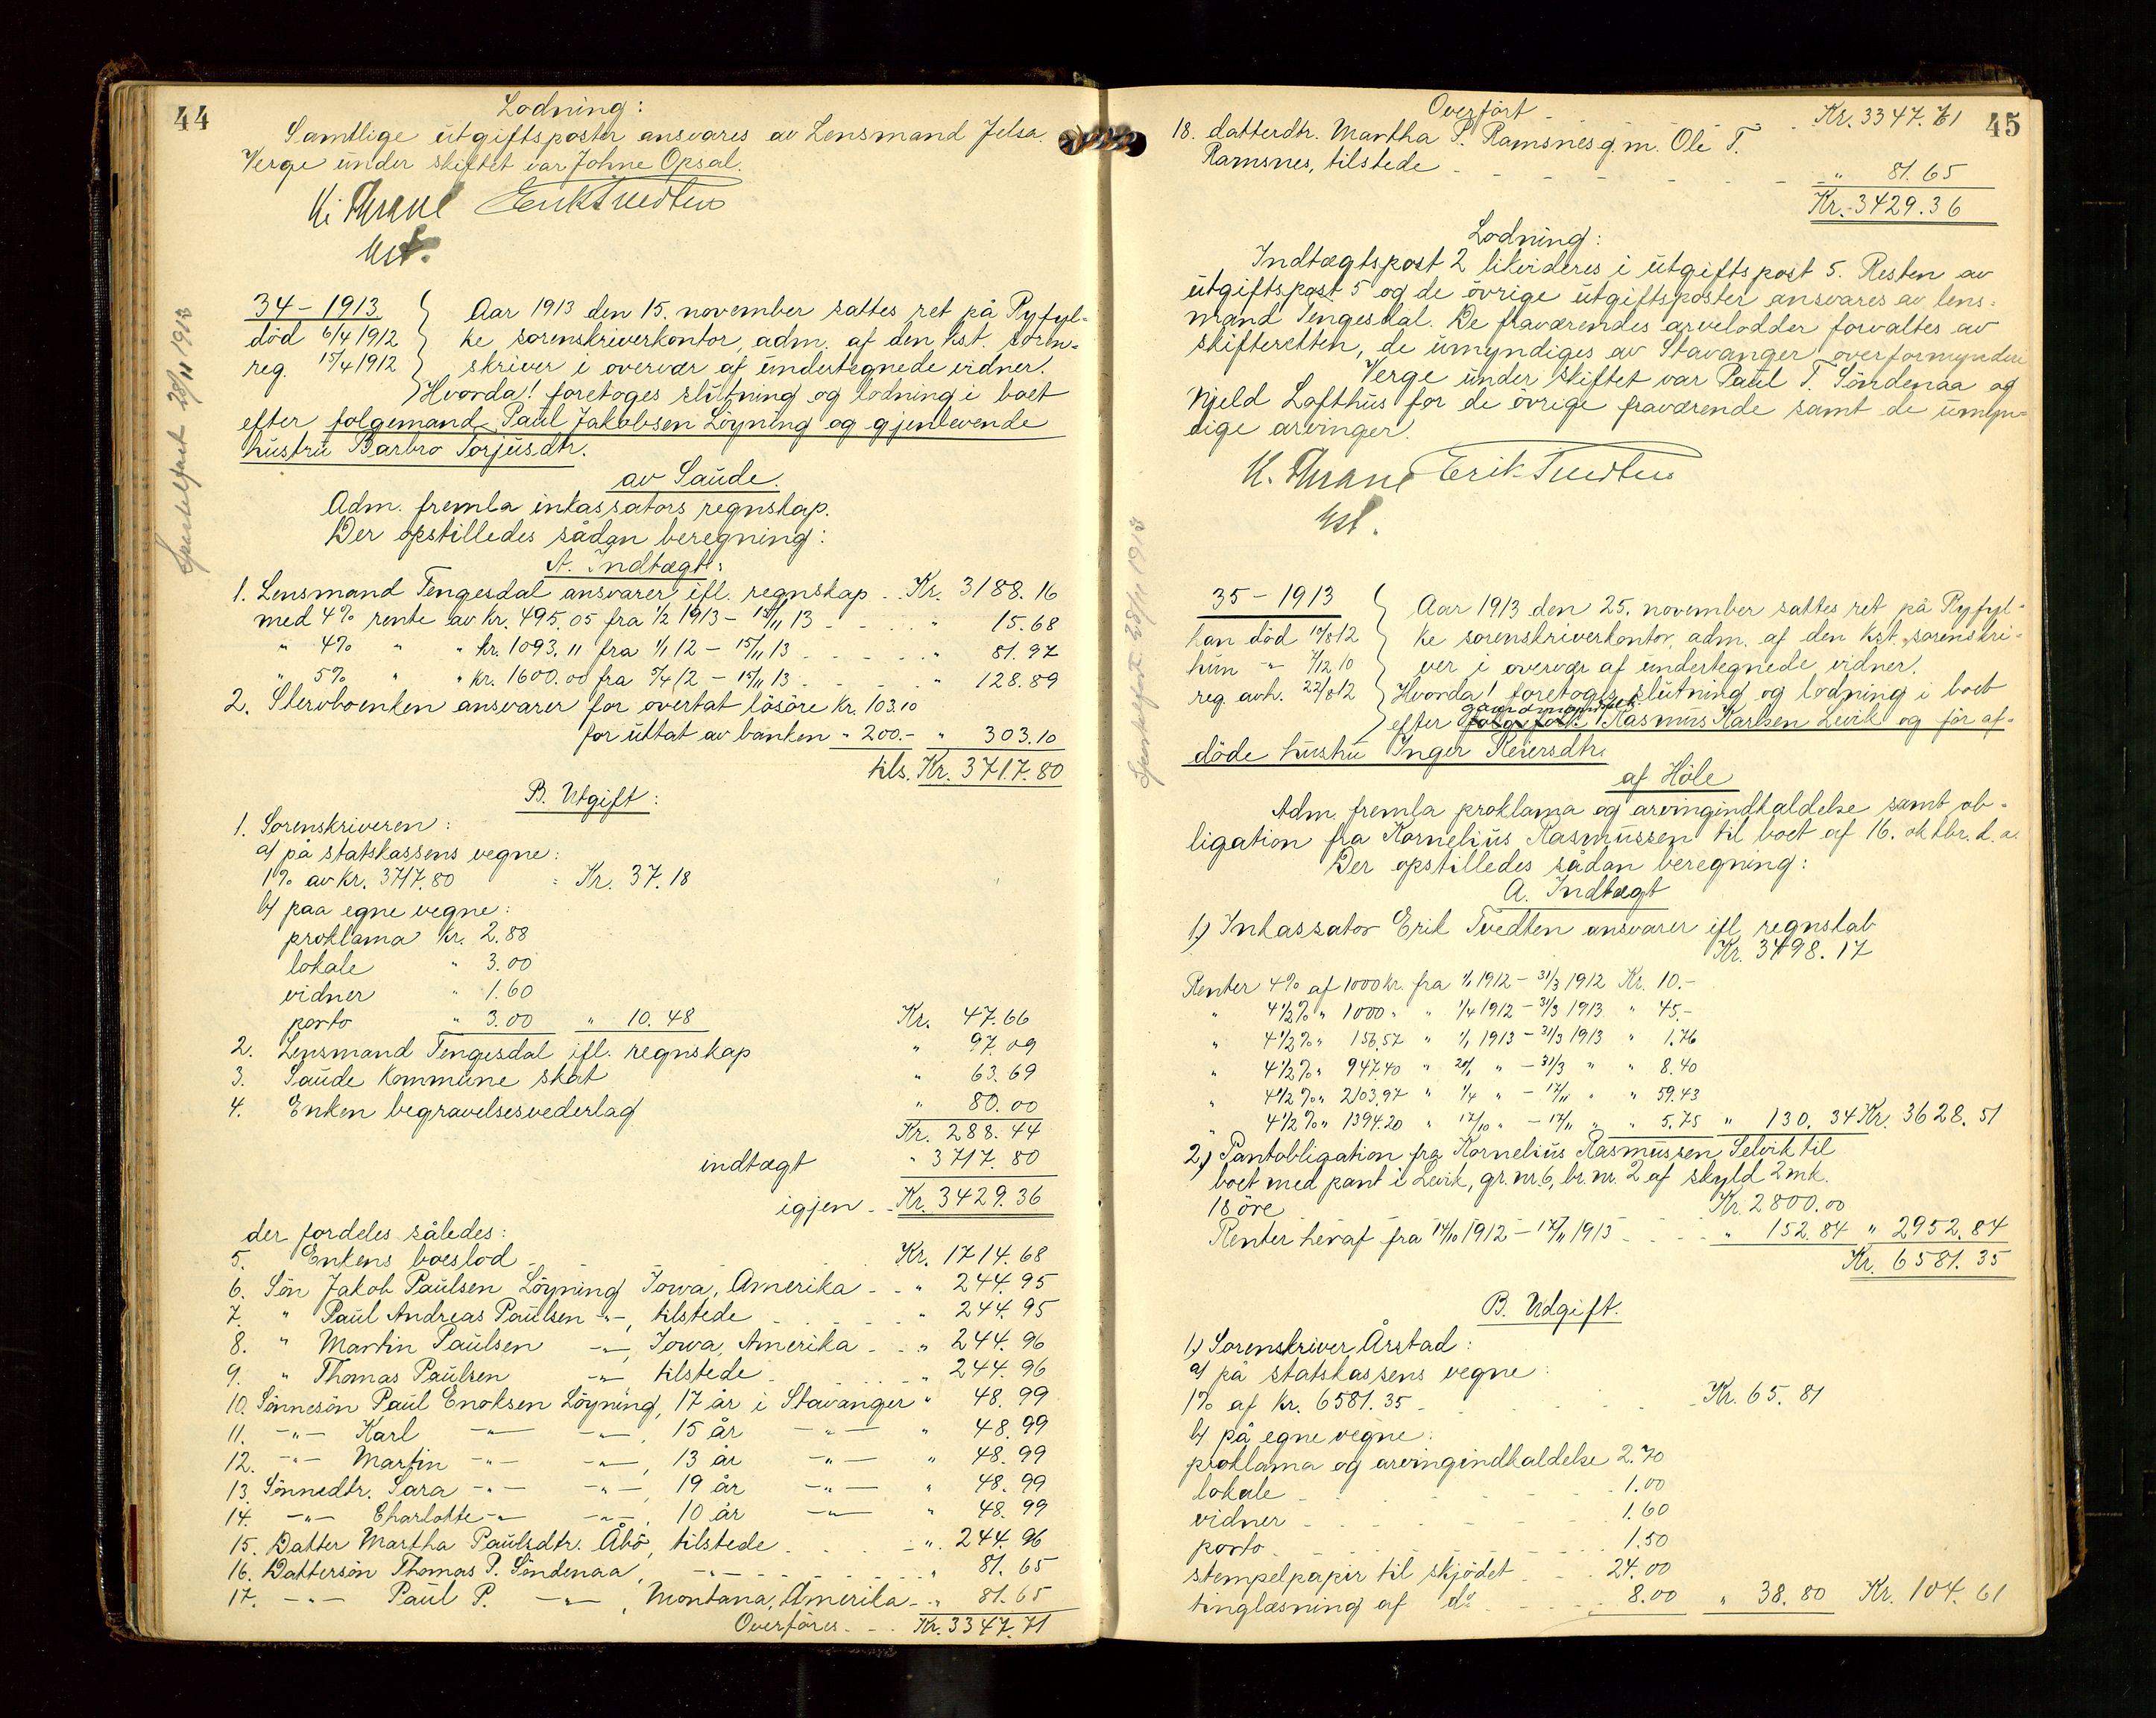 44
Lodning:
Samtlige utgiftsposter ansvares av Lensmand Jelsa.
Verge under skiftet var Johne Opsal.
K. Thrane Erik Tvedten
kst.
Spesielført 28/11 1913
34 – 1913
död 6/4 1912
reg. 15/4 1912
Aar 1913 den 15. november sattes ret på Ryfyl-
ke sorenskriverkontor, adm. af den kst. soren-
skriver i overvær af undertegnede vidner.
Hvorda! foretoges slutning og lodning i boet
efter folgemand Paul Jakobsen Löyning og gjenlevende
hustru Barbro Torjusdtr.
av Saude.
Adm. fremla inkassators regnskap.
Der opstilledes sådan beregning:
A. Indtægt:
1. Lensmand Tengesdal ansvarer ifl. regnskap . . Kr. 3188.16
med 4% rente av kr. 495.05 fra 1/2 1913 – 15/11 13 - - - " 15.68
" 4% " " kr. 1093.11 fra 1/1 12 – 15/11 13 . . . . . " 81.97
" 5% " " kr. 1600.00 fra 5/4 12 – 15/11 13 - - - - " 128.89
2. Stervboenken ansvarer for overtat lösöre kr. 103.10
for uttat av banken " 200.- " 303.10
tils. Kr. 3717.80
B. Utgift:
1. Sorenskriveren:
a) på statskassens vegne:
1% av kr. 3717.80 = Kr. 37.18
b) paa egne vegne:
proklama kr. 2.88
lokale " 3.00
vidner " 1.60
porto " 3.00 " 10.48 Kr. 47.66
2. Lensmand Tengesdal ifl. regnskap " 97.09
3. Saude kommune skat " 63.69
4. Enken begravelsesvederlag " 80.00
Kr. 288.44
indtægt " 3717.80
igjen - - Kr. 3429.36
der fordeles således:
5. Enkens boeslod - - - Kr. 1714.68
6. Sön Jakob Paulsen Löyning Iowa, Amerika - - " 244.95
7. " Paul Andreas Paulsen -"-, tilstede - - - " 244.95
8. " Martin Paulsen -"-, Iowa, Amerika - - " 244.96
9. " Thomas Paulsen -"- tilstede - - - " 244.96
10. Sönnesön Paul Enoksen Löyning, 17 år i Stavanger " 48.99
11. -"- Karl -"- -"-, 15 år -"- " 48.99
12. -"- Martin -"- -"-, 13 år -"- " 48.99
13. Sönnedtr. Sara -"- -"-, 19 år -"- " 48.99
14. -"- Charlotte -"- -"-, 10 år -"- " 48.99
15. Datter Martha Paulsdtr. Åbö, tilstede . . . " 244.96
16. Dattersön Thomas P. Söndenaa, -"- - - - " 81.65
17. -"- Paul P. -"-, Montana, Amerika - " 81.65
Overföres. - . Kr. 3347.71
45
Overfört - - - Kr. 3347.71
18. datterdtr. Martha P. Ramsnes g.m. Ole T.
Ramsnes, tilstede - - - - - - " 81.65
Kr. 3429.36
Lodning:
Indtægtspost 2 likvideres i utgiftspost 5. Resten av
utgiftspost 5 og de övrige utgiftsposter ansvares av lens-
mand Tengesdal. De fraværendes arvelodder forvaltes av
skifteretten, de umyndiges av Stavanger overformynderi
Verge under skiftet var Paul T. Söndenaa og
Njeld Lofthus for de övrige fraværende samt de umyn-
dige arvinger.
K. Thrane Erik Tvedten
kst.
Spesielført 28/11 1913
35 – 1913
han död 10/8 12
hun -"- 7/12 10
reg. avh. 22/8 12
Aar 1913 den 25. november sattes ret på Ryfyl-
ke sorenskriverkontor, adm. af den kst. sorenskri-
ver i overvær af undertegnede vidner.
Hvorda! foretoges slutning og lodning i boet
gaardmandsfolk
efter folgefolk Rasmus Karlsen Levik og för af-
döde hustru Inger Reiersdtr.
af Höle
Adm. fremla proklama og arvingindkaldelse samt ob-
ligation fra Kornelius Rasmussen til boet af 16. oktbr. d.a.
Der opstilledes sådan beregning:
A. Indtægt
1) Inkassator Erik Tvedten ansvarer ifl. regnskab
Kr. 3498.17
Renter 4% af 1000 kr. fra 1/1 1912 – 31/3 1912 Kr. 10.-
" 4 1/2% " 1000 " " 1/4 1912 – 31/3 1913 " 45.-
" 4 1/2% " 156.57 " 1/1 1913 – 31/3 1913 " 1.76
" 4 1/2% " 947.40 " 20/1 " – 31/3 " " 8.40
" 4 1/2% " 2103.97 " 1/4 " – 17/11 " " 59.43
" 4 1/2% " 1394.20 " 17/10 " – 17/11 " " 5.75 " 130.34 Kr. 3628.51
2) Pantobligation fra Kornelius Rasmussen Selvik til
boet med pant i Levik, gr. nr. 6, br. nr. 2 af skyld 2 mk.
18 öre Kr. 2800.00
Renter heraf fra 14/10 1912 – 17/11 1913 - - - " 152.84 " 2952.84
Kr. 6581.35
B. Udgift.
1) Sorenskriver Årstad:
a) på statskassens vegne:
1% af kr. 6581.35 - - - - Kr. 65.81
b) på egne vegne:
proklama og arvingindkaldelse 2.70
lokale - - - 1.00
vidner - - - 1.60
porto - - - 1.50
stempelpapir til skjödet - - 24.00
tinglæsning af do. - - - 8.00 " 38.80 Kr. 104.61